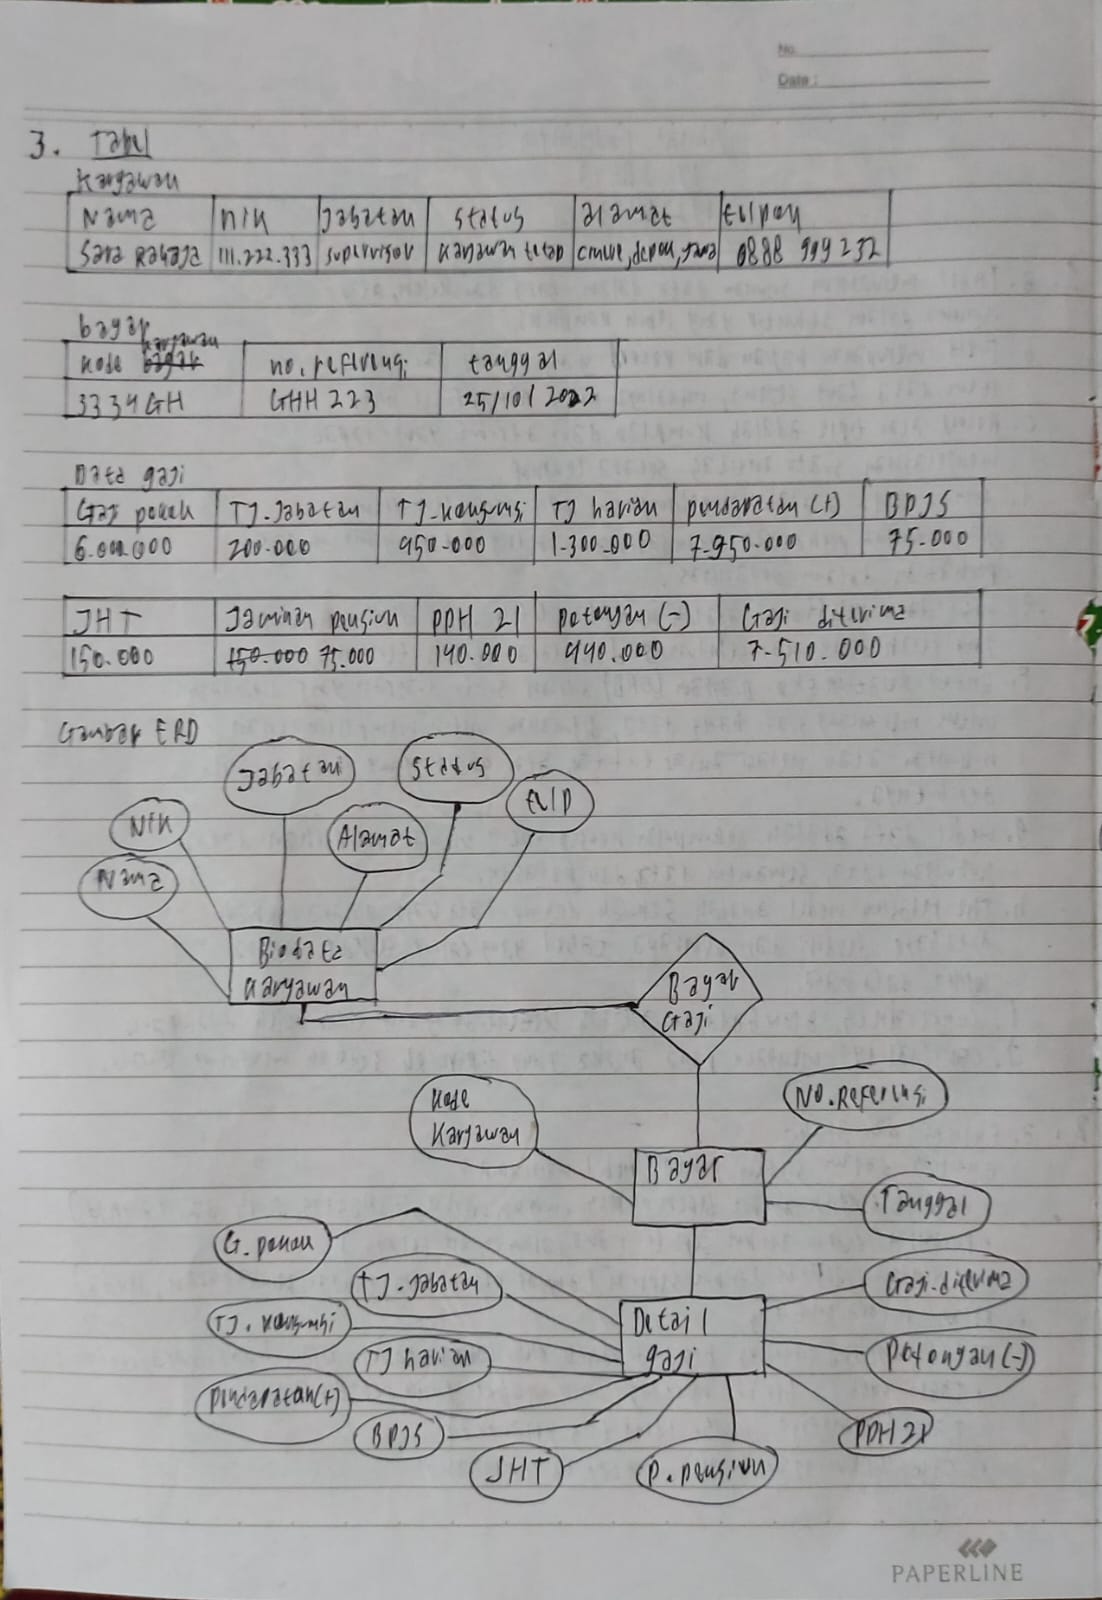 No.
Date :
3. Tabel
Karyawan
Nama NIK Jabatan Status alamat telpon
Sata Rahaja 111.222.333 supervisor Karyawan tetap depok, 0888 999 232
bayar
kode karyawan no. refrensi tanggal
3334GH GHH 223 25/10/2022
Data gaji
Gaji pokok TJ.Jabatan TJ-konsumsi TJ harian pendapatan (+) BPJS
6.000.000 200.000 450.000 1.300.000 7.950.000 75.000
JHT Jaminan pensiun PPH 21 potongan (-) Gaji diterima
150.000 150.000 75.000 140.000 440.000 7.510.000
Gambar ERD
Jabatan Status
NIK Alamat telp
Nama
Biodata
Karyawan
Bayar
Gaji
Kode
Karyawan
No.Refrensi
Bayar
Tanggal
G. pokok
TJ.Jabatan
Gaji.diterima
TJ. konsumsi
Detail
gaji
TJ harian
Potongan (-)
pendapatan(+)
BPJS
PPH 21
JHT
P. pensiun
PAPERLINE